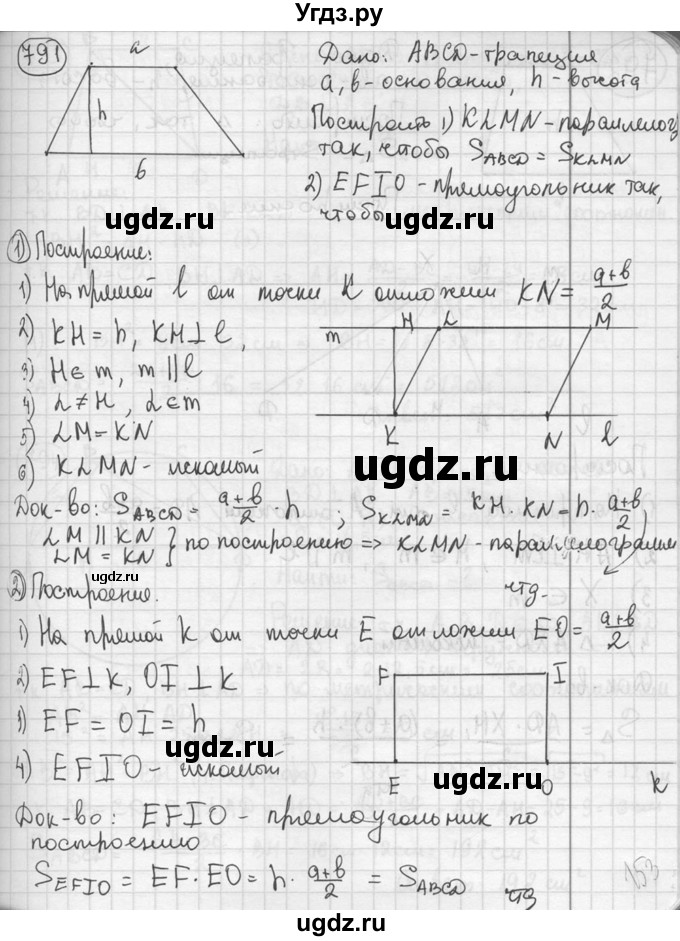 Угдз.ру
791
a
h
b
Дано: ABCD-трапеция
a, b-основания, h-высота
Построить 1) KLMN-параллелог
так, чтобы S_ABCD = S_KLMN
2) EFIO - прямоугольник так,
чтобы
ugdz.ru
ugdz.ru
1) Построение:
1) На прямой l от точки K отложим KN = (a+b)/2
2) KH = h, KH ⊥ l,
3) H ∈ m, m || l
4) L ≠ H, L ∈ m
5) LM = KN
6) KLMN - искомый
m H L M
K N l
ugdz.ru
ugdz.ru
Док-во: S_ABCD = (a+b)/2 · h ; S_KLMN = KH · KN = h · (a+b)/2
LM || KN
LM = KN } по построению => KLMN - параллелограмм
ugdz.ru
чтд.
2) Построение.
1) На прямой k от точки E отложим EO = (a+b)/2
2) EF ⊥ k, OI ⊥ k
3) EF = OI = h
4) EFIO - искомый
F I
E O k
ugdz.ru
ugdz.ru
Док-во: EFIO - прямоугольник по
построению
S_EFIO = EF · EO = h · (a+b)/2 = S_ABCD
чтд
153
ugdz.ru
ugdz.ru
ugdz.ru